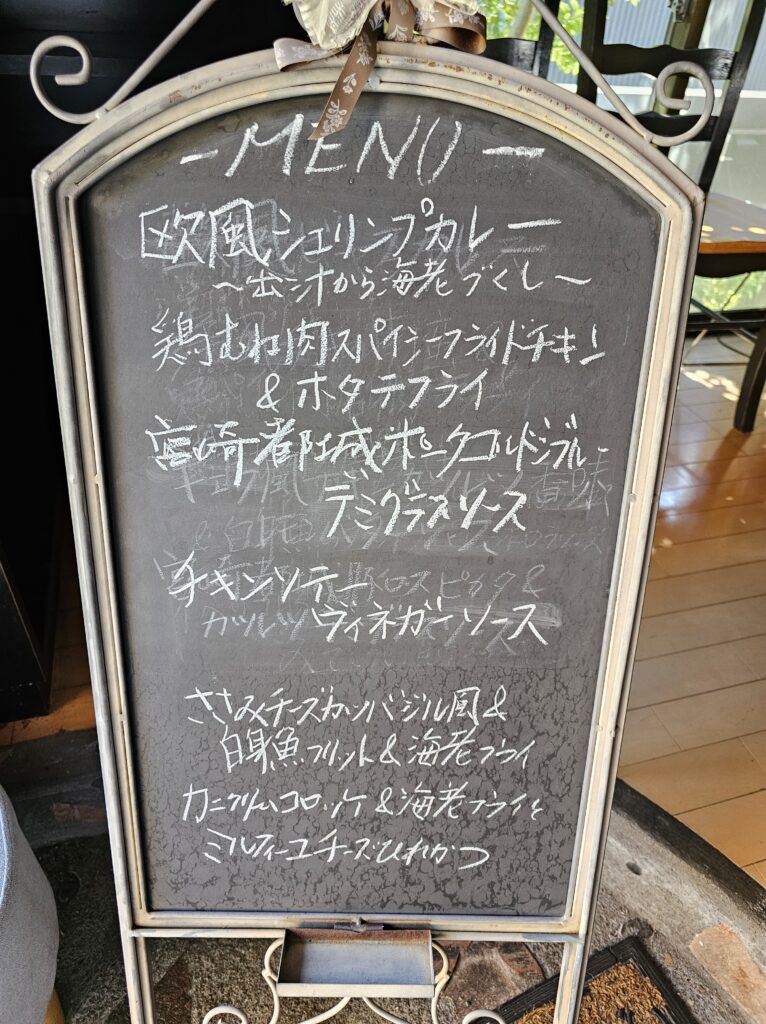 -MENU-
欧風シュリンプカレー
～出汁から海老づくし～
鶏むね肉スパイシーフライドチキン
&ホタテフライ
宮崎都城ポークゴルドンブルー
デミグラスソース
チキンソテー
ヴィネガーソース
ささみチーズカツバジル風&
白身魚フリット&海老フライ
カニクリームコロッケ&海老フライと
ミルフィーユチーズひれかつ